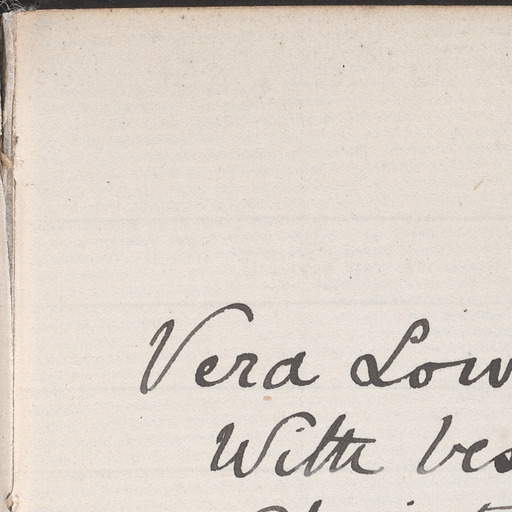 Vera Low
With bes